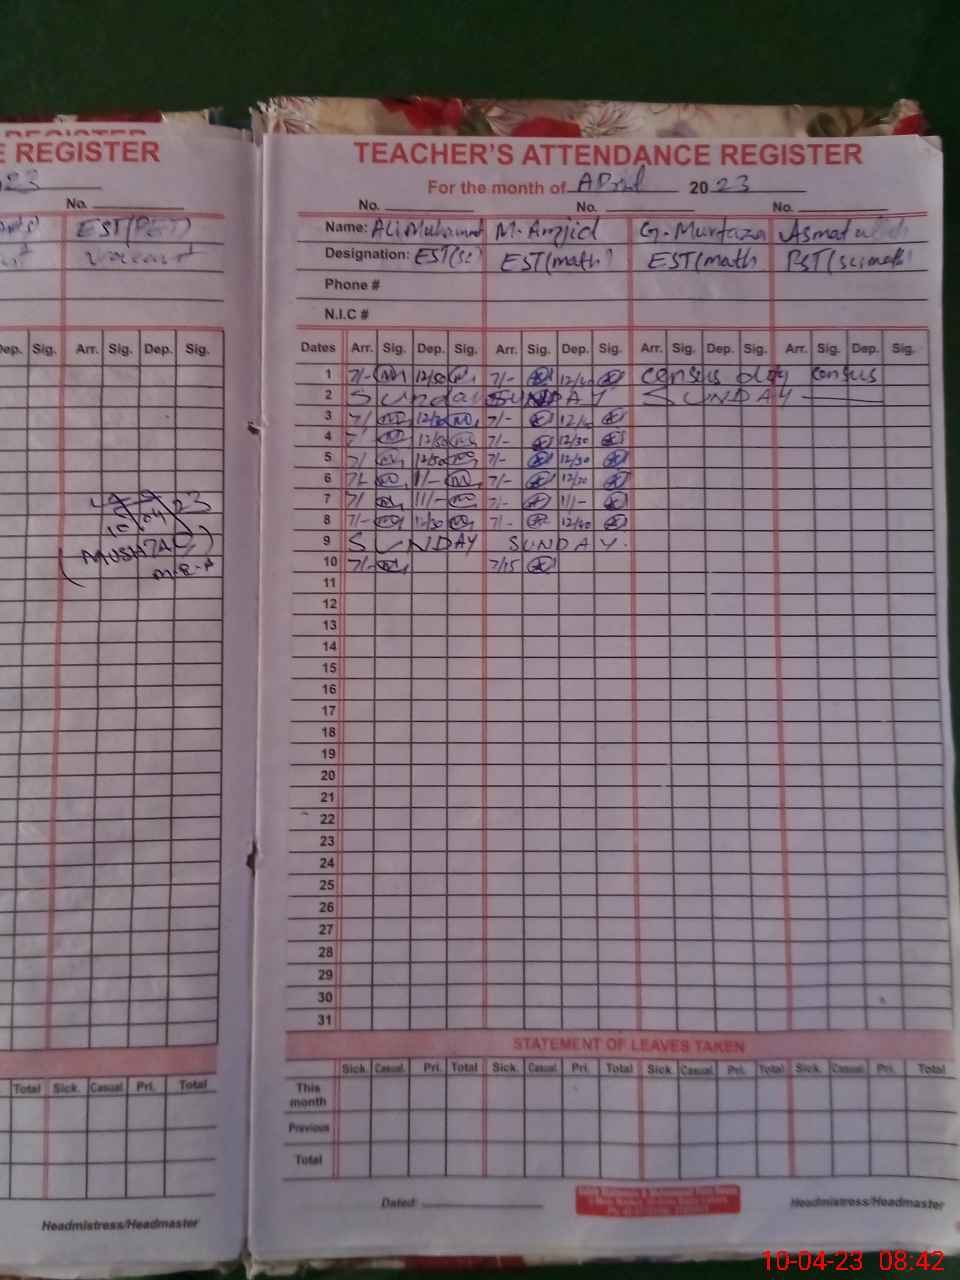 REGISTER
E REGISTER
23
No.
EST(PET)
vacant
Dep. Sig. Arr. Sig. Dep. Sig.
23
10.04
(MUSHTAQ)
M-E-A
Total Sick. Casual Pri. Total
Headmistress/Headmaster
TEACHER'S ATTENDANCE REGISTER
For the month of April 2023
No. No. No.
Name: Ali Muhammad M. Amjid G. Murtaza Asmatullah
Designation: EST(sc) EST(math) EST(math PST(sci math)
Phone #
N.I.C #
Dates Arr. Sig. Dep. Sig. Arr. Sig. Dep. Sig. Arr. Sig. Dep. Sig. Arr. Sig. Dep. Sig.
1 7/- 12/50 7/- 12/40 census day census
2 Sunday SUNDAY SUNDAY
3 7/ 7/-
4 7/ 12/50 7/- 12/30
5 7/ 12/50 7/- 12/30
6 7/- 11/- 7/- 12/30
7 7/ 11/- 7/- 11/-
8 7/- 12/30 7/- 12/40
9 SUNDAY SUNDAY.
10 7/- 7/15
11
12
13
14
15
16
17
18
19
20
21
22
23
24
25
26
27
28
29
30
31
STATEMENT OF LEAVES TAKEN
Sick. Casual Pri. Total Sick. Casual Pri. Total Sick. Casual Pri. Total Sick. Casual Pri. Total
This
month
Previous
Total
Dated:
Headmistress/Headmaster
10-04-23 08:42